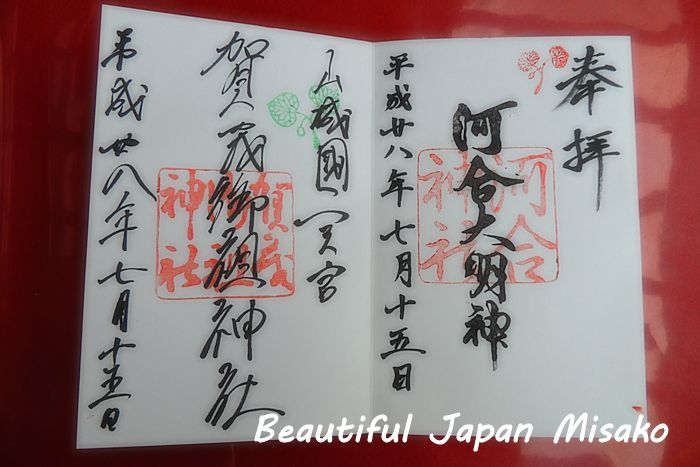 奉拝
河合大明神
河合
神社
平成廿八年七月十五日
山城國一宮
賀茂御祖神社
賀茂
御祖
神社
平成廿八年七月十五日
Beautiful Japan Misako